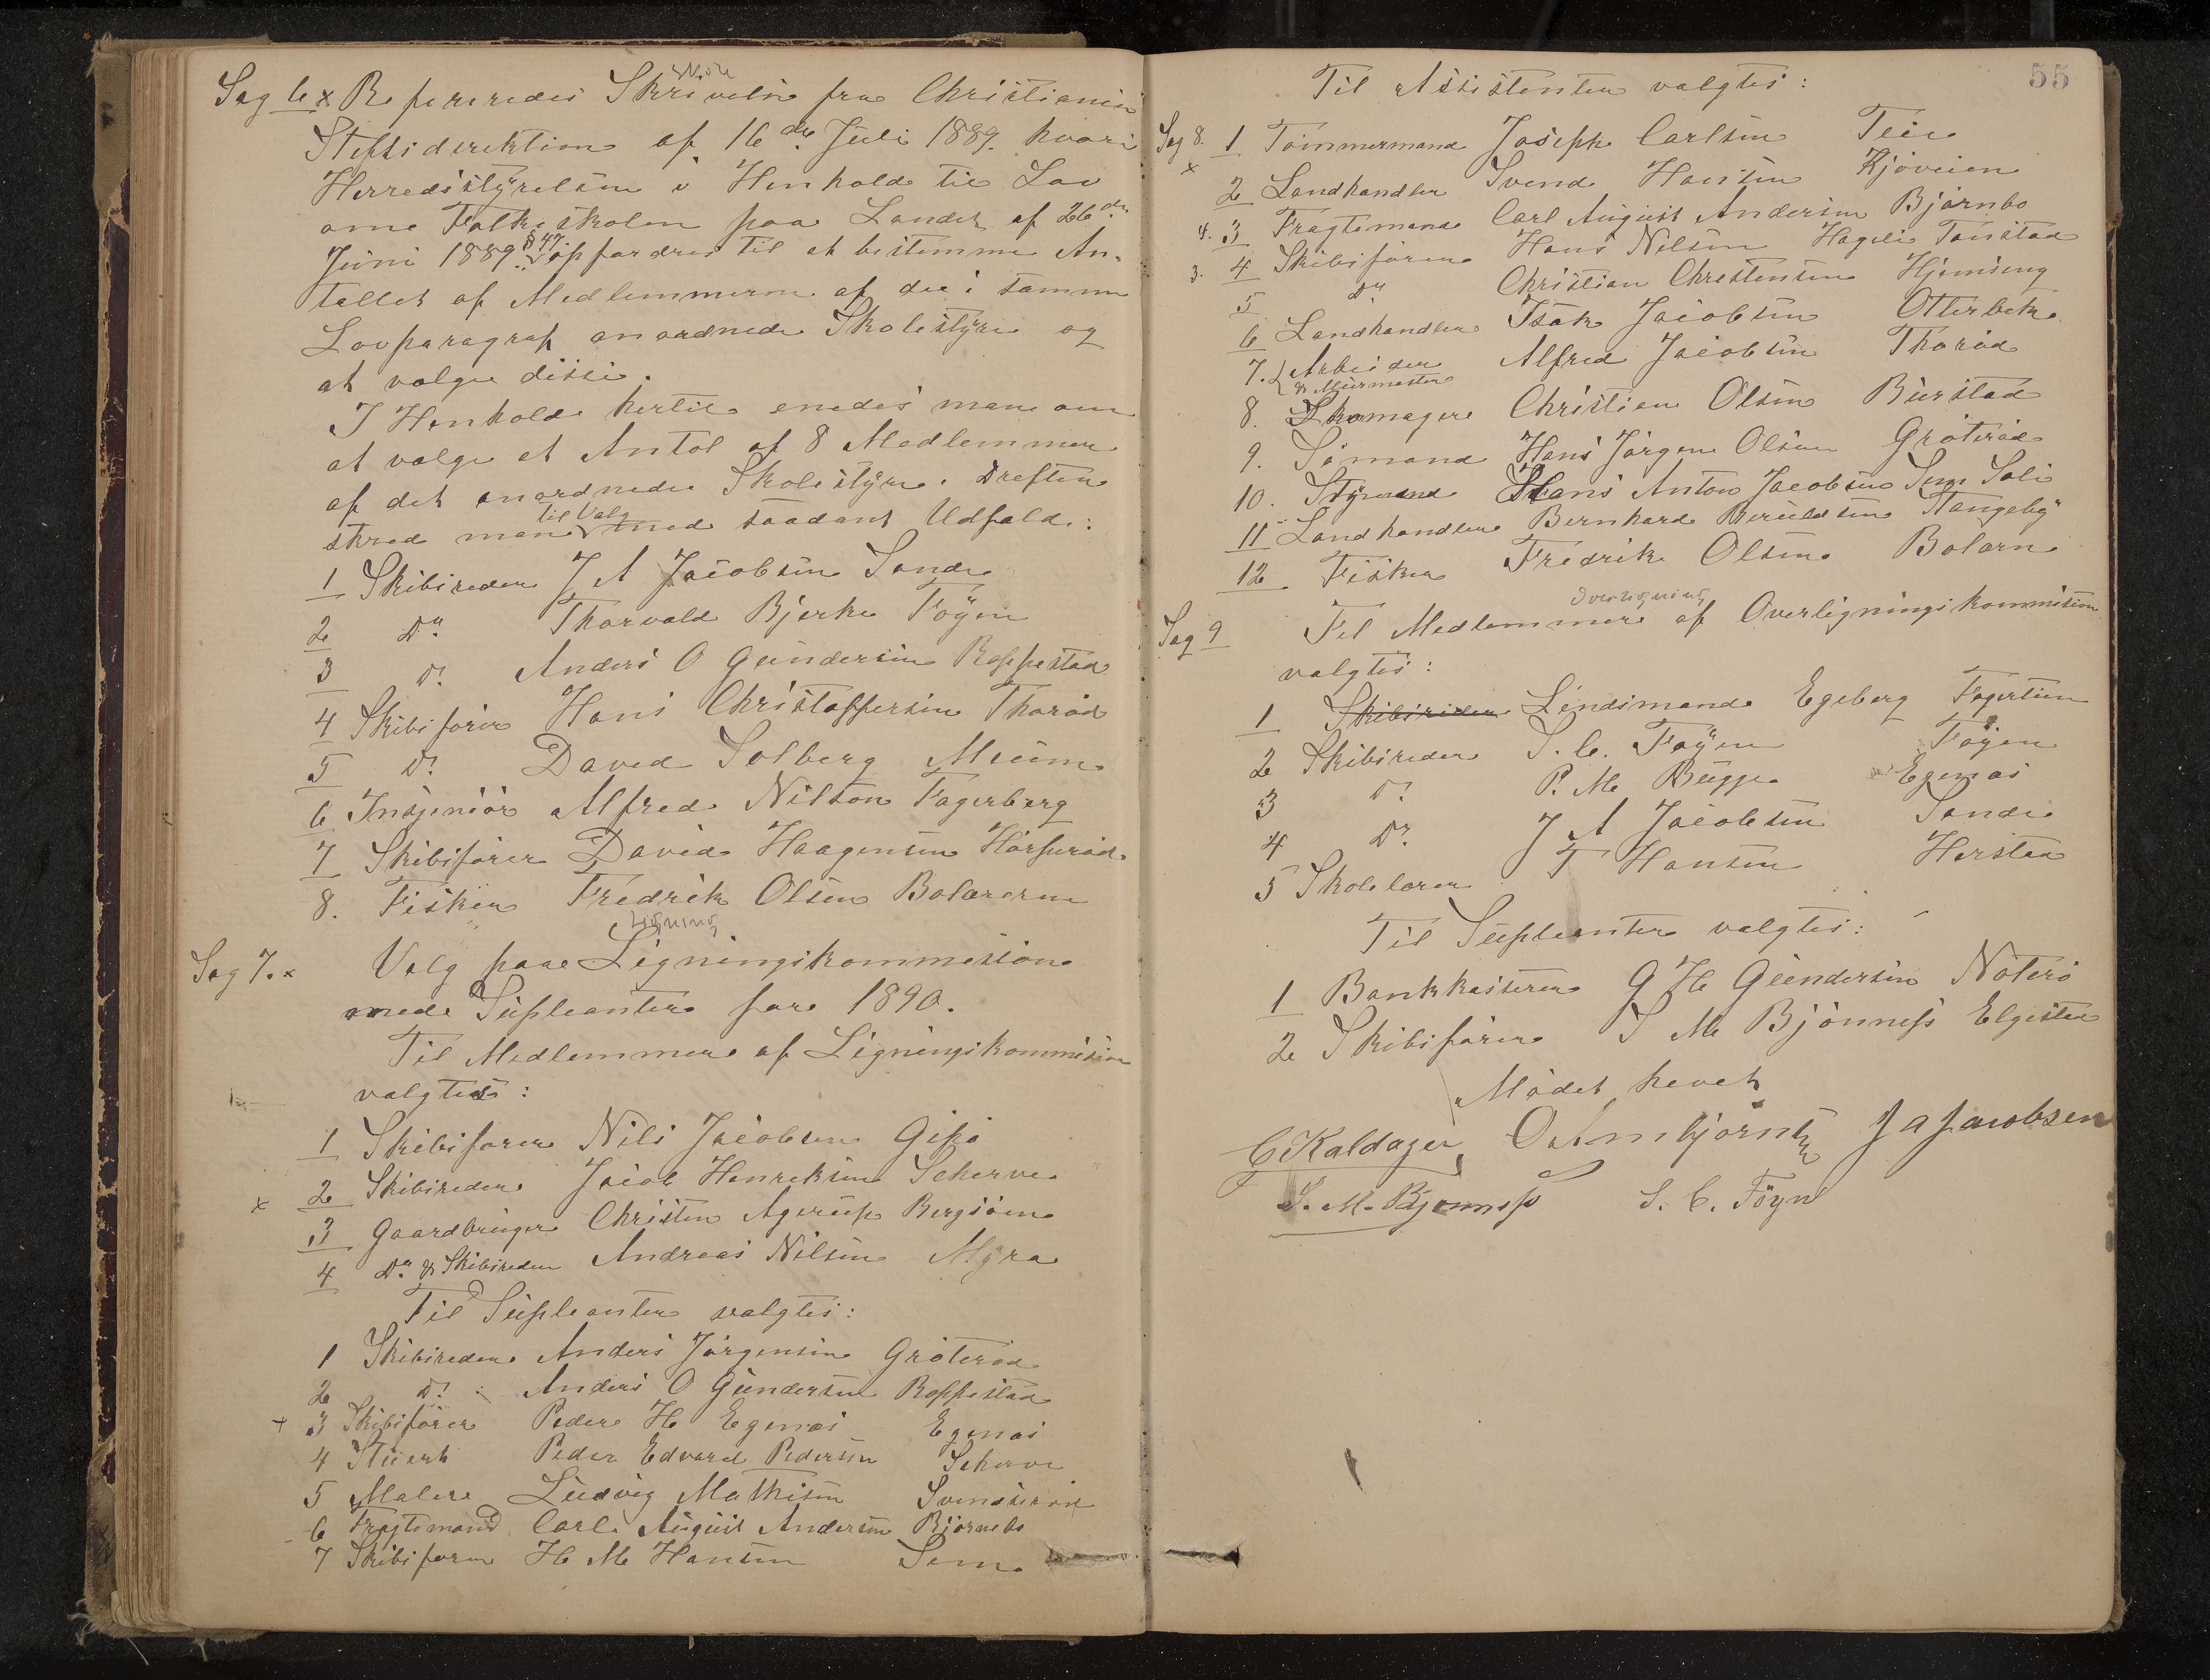 Skole
Sag 6 x Refereredes Skrivelse fra Christiania
Stiftsdirektion af 16de Juli 1889. hvori
Herredsstyrelsen i Henhold til Lov
om Folkeskolen paa Landet af 26de
Juni 1889 § 47. opfordres til at bestemme An-
tallet af Medlemmerne af det i samme
Lovparagraf anordnede Skolestyre og
at vælge disse.
I Henhold hertil enedes man om
at vælge et Antal af 8 Medlemmer
af det anordnede Skolestyre. Derefter
skred man til Valg med saadant Udfald:
1 Skibsreder J A Jacobsen Sande
2 Do. Thorvald Bjerke Föyen
3 Do. Anders O Gundersen Roppestad
4 Skibsfører Hans Christoffersen Thorød
5 Do. David Solberg Meum
6 Insjeniør Alfred Nilson Fagerberg
7 Skibsfører David Haagensen Hårfurød
8. Fisker Fredrik Olsen Bolærerne
Ligning
Sag 7. x Valg paa Ligningskommission
med Supleanter for 1890.
Til Medlemmer af Ligningskommision
valgtes:
1 Skibsfører Nils Jacobsen Gipø
x 2 Skibsreder Jacob Henriksen Skjerve
3 Gaardbruger Christen Agerup Bergsøen
4 Do. & Skibsreder Andreas Nilsen Myra
Til Supleanter valgtes:
1 Skibsreder Anders Jørgensen Grøterød
2 Do. Anders O Gundersen Roppestad
+ 3 Skibsfører Peder H Egenæs Egenæs
4 Stuert Peder Edvard Pedersen Skjerve
5 Maler Ludvig Mathisen Svendserød
6 Fragtemand Carl August Andersen Bjørnebo
7 Skibsfører H M Hansen Sem
55
Til Assistenter valgtes:
Sag 8. 1 Tømmermand Joseph Carlsen Teie
x
2 Landhandler Svend Hansen Kjøveien
4. 3 Fragtemand Carl August Andersen Bjørnbo
3. 4 Skibsfører Hans Nilsen Hageli Tønstad
5 Do Christian Christensen Hjemseng
6 Landhandler Isak Jacobsen Otterbek
7. { Arbeider Alfred Jacobsen Thorød
& Murmester
8. Skomager Christian Olsen Buerstad
9. Sømand Hans Jørgen Olsen Grøterød
10. Styrmand Hans Anton Jacobsen Sem Soli
11 Landhandler Bernhard Beruldsen Tangeby
12 Fisker Fredrik Olsen Bolærn
Overligning
Sag 9 Til Medlemmer af Overligningskommision
valgtes:
1 Skibsreder Lendsmand Egeberg Fagertun
2 Skibsreder S. C. Föyen Föyen
3 Do. P. M Bugge Egenæs
4 Do. J A Jacobsen Sande
5 Skolelærer T Hansen Herstad
Til Supleanter valgtes:
1 Bankkasserer G H Gundersen Nøterø
2 Skibsfører S M Bjønness Elgestad
Mødet hevet
C Kaldager O Arnbjørnsen J A Jacobsen
S. M. Bjønness S. C. Föyn